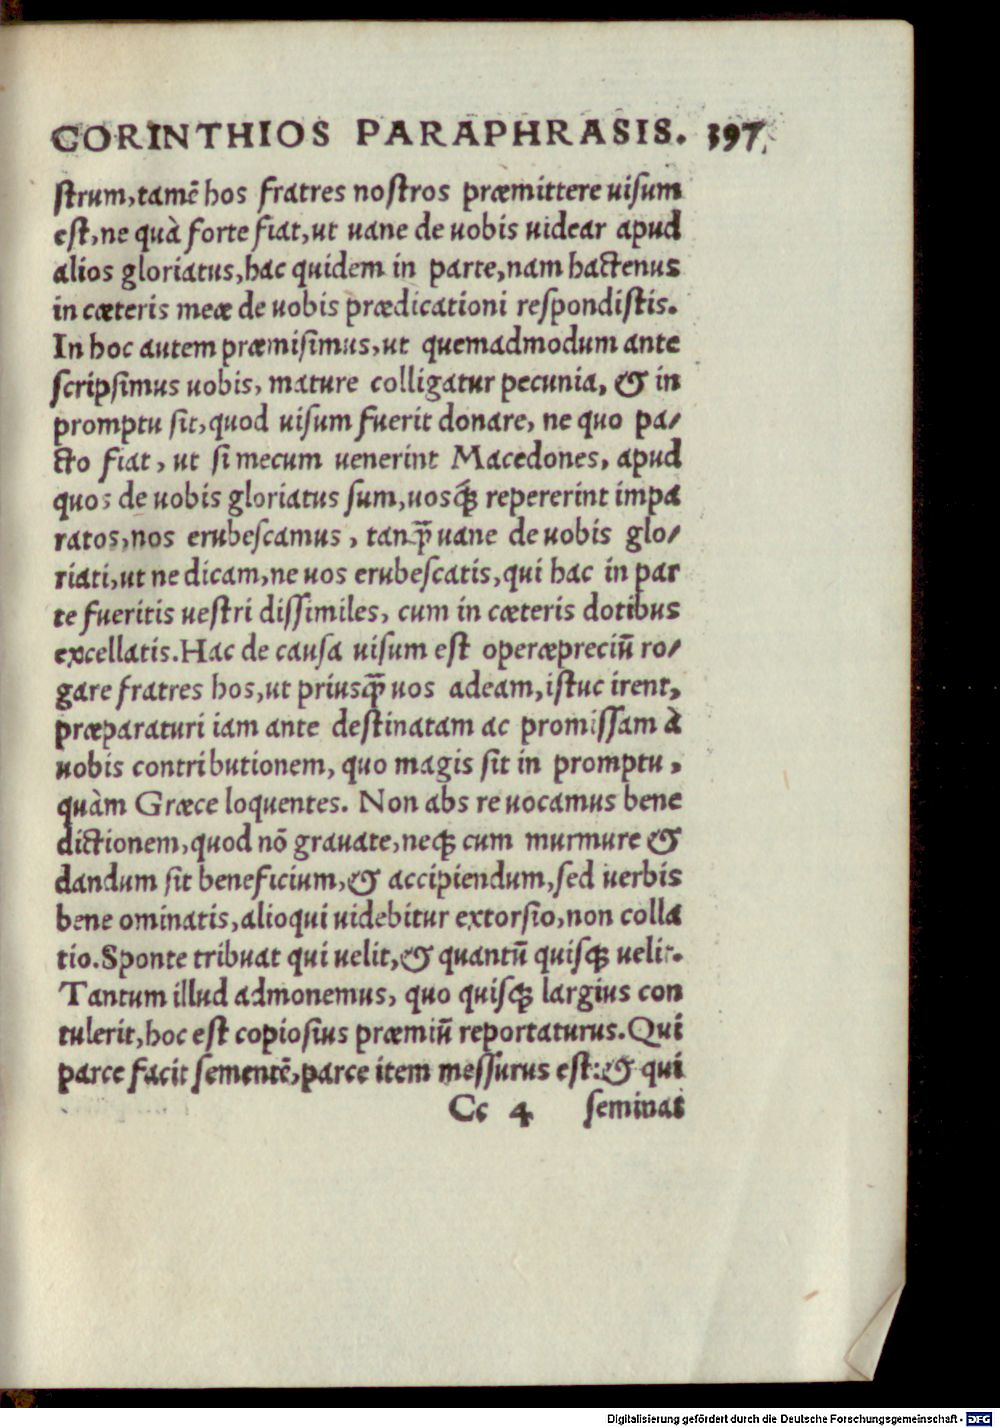 CORINTHIOS PARAPHRASIS. 397.
strum,tamē hos fratres nostros præmittere uisum
est,ne quà forte fiat,ut uane de uobis uidear apud
alios gloriatus,hac quidem in parte,nam hactenus
in cæteris meæ de uobis prædicationi respondistis.
In hoc autem præmisimus,ut quemadmodum ante
scripsimus uobis, mature colligatur pecunia, & in
promptu sit,quod uisum fuerit donare, ne quo pa/
cto fiat, ut si mecum uenerint Macedones, apud
quos de uobis gloriatus sum,uosq́; repererint impa
ratos,nos erubescamus, tanq̄ uane de uobis glo/
riati,ut ne dicam,ne uos erubescatis,qui hac in par
te fueritis uestri dissimiles, cum in cæteris dotibus
excellatis.Hac de causa uisum est operæpreciū ro/
gare fratres hos,ut priusq̄ uos adeam,istuc irent,
præparaturi iam ante destinatam ac promissam à
uobis contributionem, quo magis sit in promptu,
quàm Græce loquentes. Non abs re uocamus bene
dictionem,quod nō grauate,neq; cum murmure &
dandum sit beneficium,& accipiendum,sed uerbis
bene ominatis,alioqui uidebitur extorsio,non colla
tio.Sponte tribuat qui uelit,& quantū quisq; uelit.
Tantum illud admonemus, quo quisq; largius con
tulerit,hoc est copiosius præmiū reportaturus.Qui
parce facit sementē,parce item messurus est:& qui
Cc 4 seminat
Digitalisierung gefördert durch die Deutsche Forschungsgemeinschaft - DFG